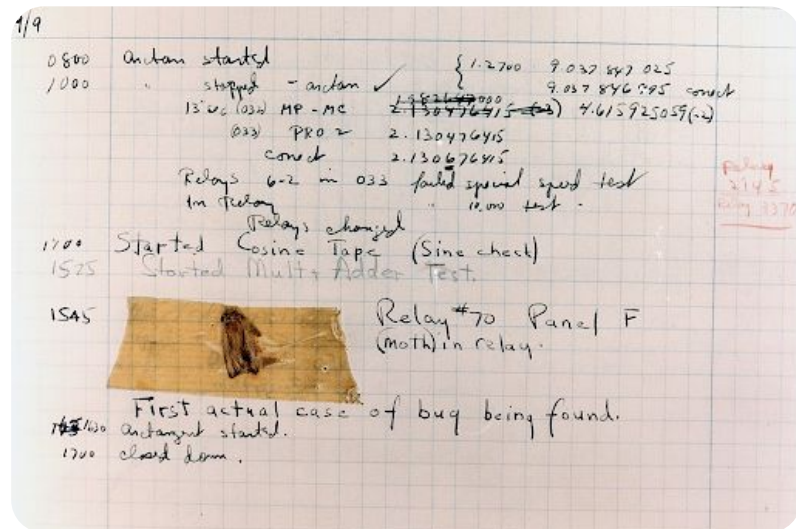 9/9
0800 arctan started { 1.2700 9.037 847 025
1000 " stopped - arctan ✓ 9.037 846 995 conect
13"uc (032) MP - MC 2.130476415 (-3) 4.615925059(-2)
(033) PRO 2 2.130476415
conect 2.130676415
Relays 6-2 in 033 failed special speed test
In Relay " 10.000 test .
Relays changed
Relay
2145
Relay 3370
1700 Started Cosine Tape (Sine check)
1525 Started Mult + Adder Test.
1545 Relay #70 Panel F
(moth) in relay.
First actual case of bug being found.
1630 arctangent started.
1700 closed down.